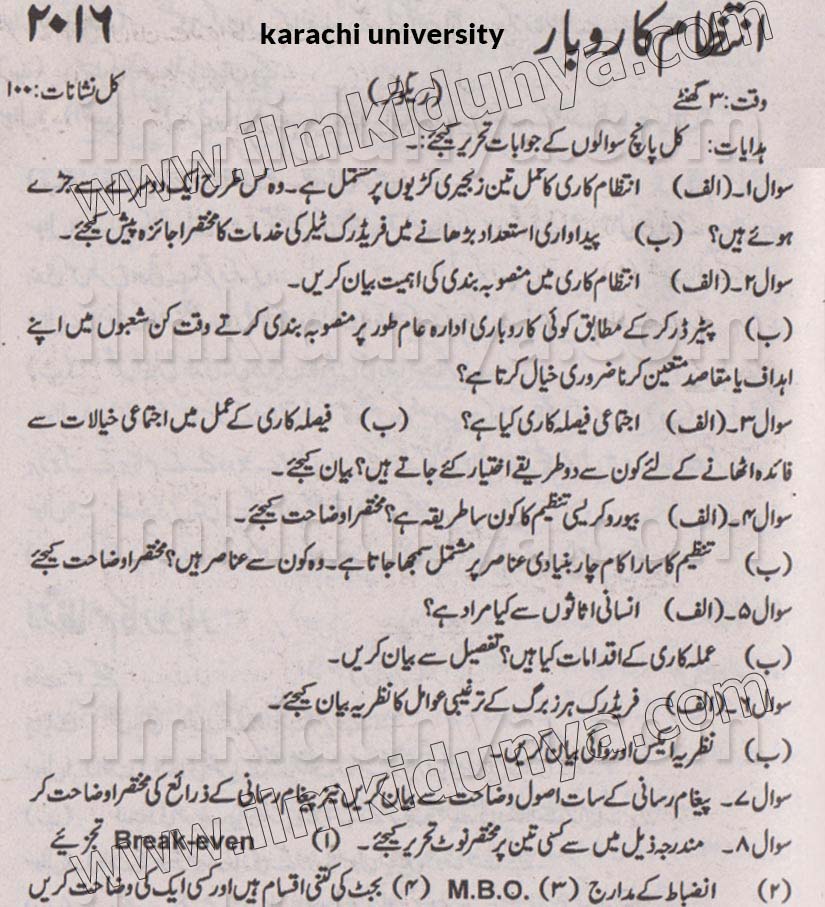 انتظام کاروبار karachi university ۲۰۱۶
وقت: ۳ گھنٹے (ریگولر) کل نشانات: ۱۰۰
ہدایات: کل پانچ سوالوں کے جوابات تحریر کیجئے:۔
سوال ۱۔ (الف) انتظام کاری کا عمل تین زنجیری کڑیوں پر مشتمل ہے۔ وہ کس طرح ایک دوسرے سے جڑے
ہوئے ہیں؟ (ب) پیداواری استعداد بڑھانے میں فریڈرک ٹیلر کی خدمات کا مختصراً جائزہ پیش کیجئے۔
سوال ۲۔ (الف) انتظام کاری میں منصوبہ بندی کی اہمیت بیان کریں۔
(ب) پیٹر ڈرکر کے مطابق کوئی کاروباری ادارہ عام طور پر منصوبہ بندی کرتے وقت کن شعبوں میں اپنے
اہداف یا مقاصد متعین کرنا ضروری خیال کرتا ہے؟
سوال ۳۔ (الف) اجتماعی فیصلہ کاری کیا ہے؟ (ب) فیصلہ کاری کے عمل میں اجتماعی خیالات سے
فائدہ اٹھانے کے لئے کون سے دو طریقے اختیار کئے جاتے ہیں؟ بیان کیجئے۔
سوال ۴۔ (الف) بیوروکریسی تنظیم کا کون سا طریقہ ہے؟ مختصراً وضاحت کیجئے۔
(ب) تنظیم کا سارا کام چار بنیادی عناصر پر مشتمل سمجھا جاتا ہے۔ وہ کون سے عناصر ہیں؟ مختصراً وضاحت کیجئے
سوال ۵۔ (الف) انسانی اثاثوں سے کیا مراد ہے؟
(ب) عملہ کاری کے اقدامات کیا ہیں؟ تفصیل سے بیان کریں۔
سوال ۶۔ (الف) فریڈرک ہرزبرگ کے ترغیبی عوامل کا نظریہ بیان کیجئے۔
(ب) نظریہ ایکس اور وائی بیان کریں۔
سوال ۷۔ پیغام رسانی کے سات اصول وضاحت سے بیان کریں نیز پیغام رسانی کے ذرائع کی مختصراً وضاحت کر
سوال ۸۔ مندرجہ ذیل میں سے کسی تین پر مختصر نوٹ تحریر کیجئے۔ (۱) Break-even تجزیئے
(۲) انضباط کے مدارج (۳) M.B.O. (۴) بجٹ کی کتنی اقسام ہیں اور کسی ایک کی وضاحت کریں
www.ilmkidunya.com
www.ilmkidunya.com
www.ilmkidunya.com